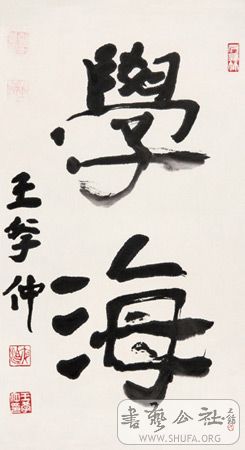 學海
王學仲
書藝公社
WWW.SHUFA.ORG